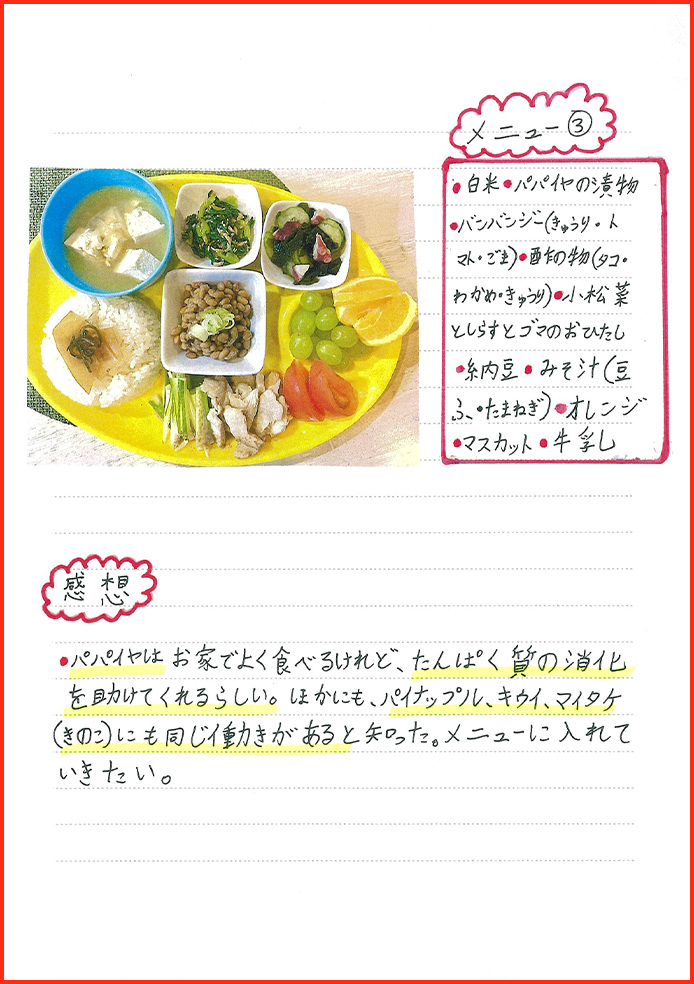 メニュー③
●白米●パパイヤの漬物
●バンバンジー(きゅうり・ト
マト・ごま)●酢の物(タコ・
わかめ・きゅうり)●小松菜
としらすとゴマのおひたし
●納豆●みそ汁(豆
ふ・たまねぎ)●オレンジ
●マスカット●牛乳
感想
●パパイヤはお家でよく食べるけれど、たんぱく質の消化
を助けてくれるらしい。ほかにも、パイナップル、キウイ、マイタケ
(きのこ)にも同じ働きがあると知った。メニューに入れて
いきたい。